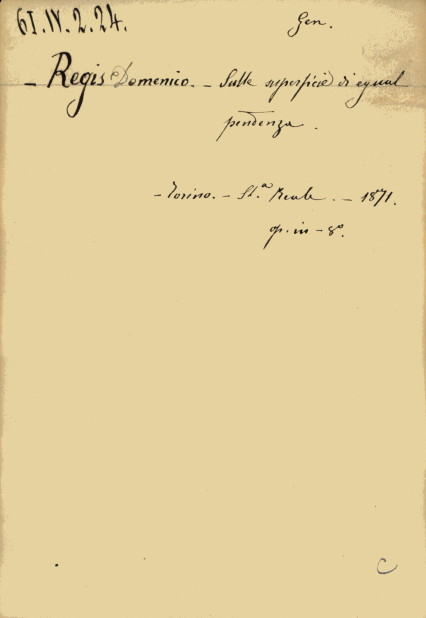 61.IV.2.24.
Gen.
- Regis Domenico. - Sulle superficie di egual
pendenza.
- Torino. - St.ª Reale. - 1871.
op. in - 8º.
C